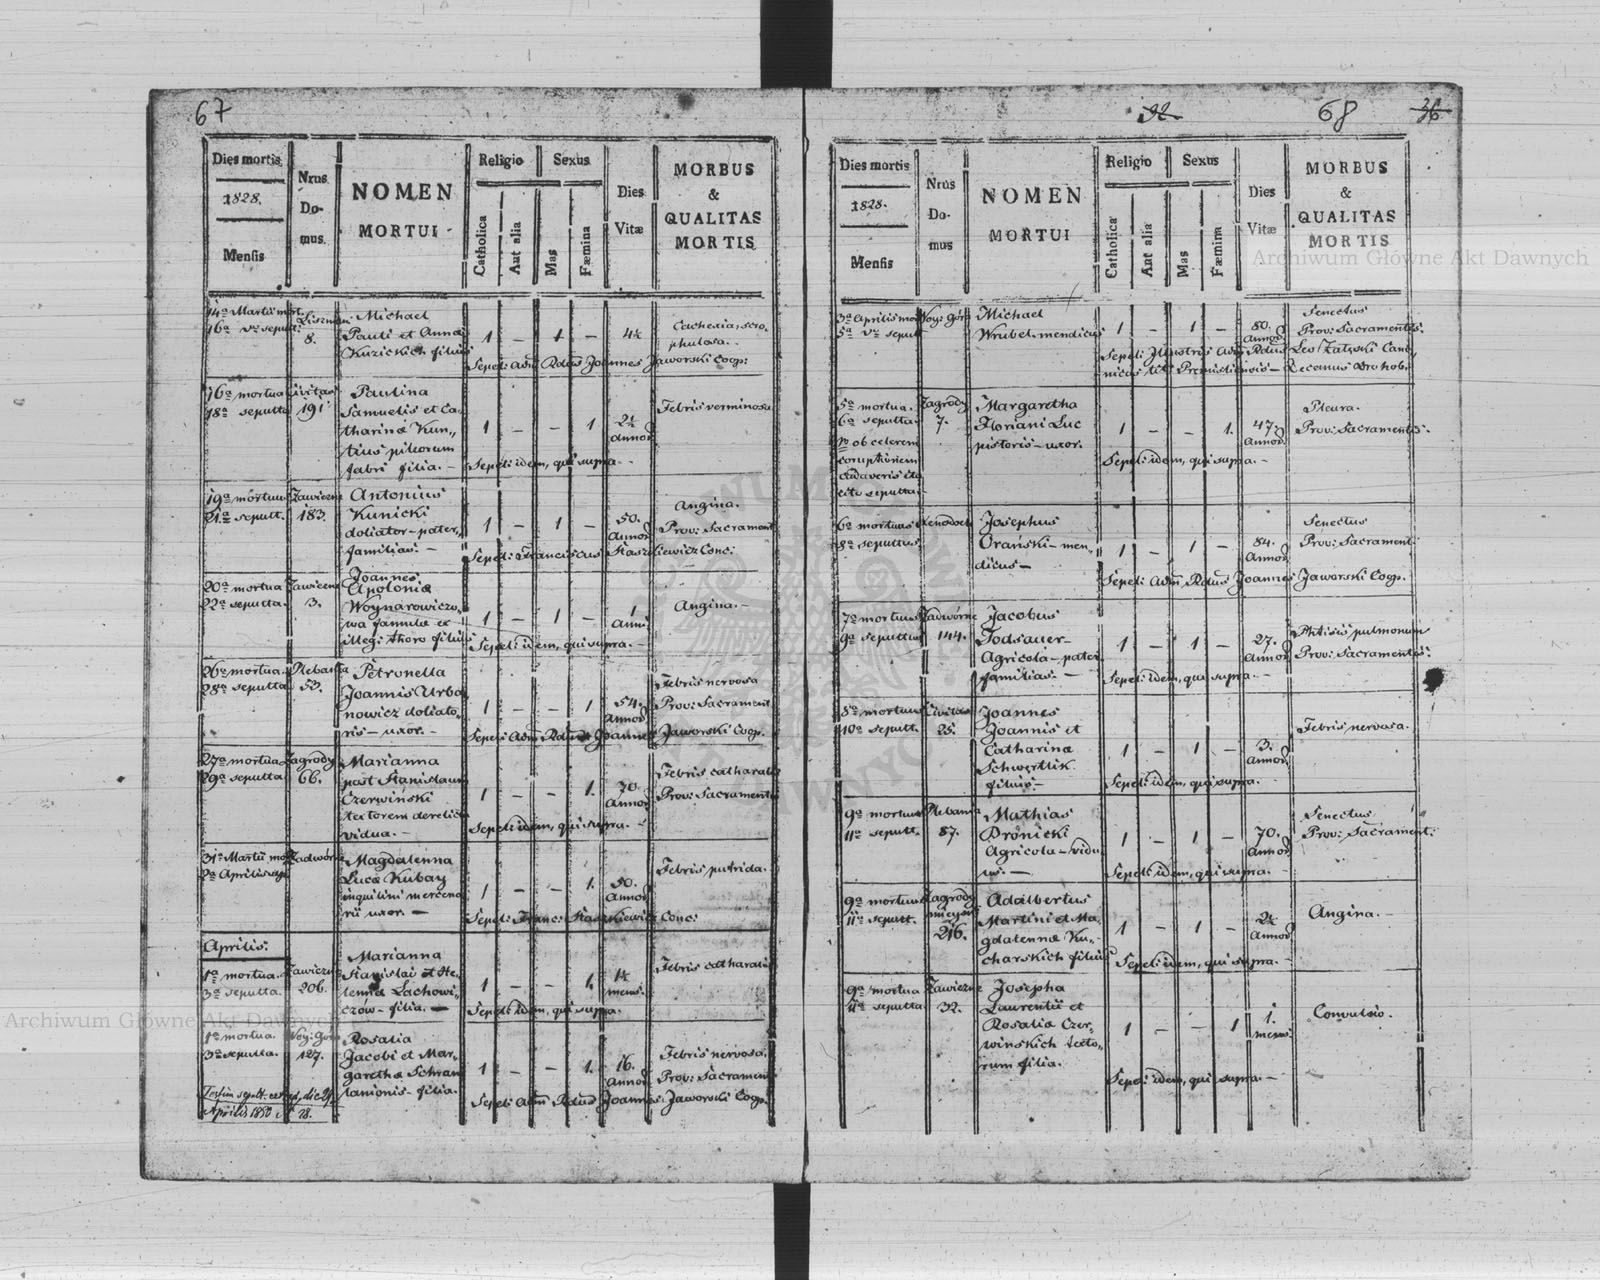 67
Dies mortis
1828.
Mensis
Nrus
Do-
mus.
NOMEN
MORTUI
Religio
Catholica
Aut alia
Sexus
Mas
Fæmina
Dies
Vitæ
MORBUS
&
QUALITAS
MORTIS
14a Martii
16a sepult:
8.
Michael
Pauli et Anna
Kuzickich filius
1 – 1 –
Cachexia, scro-
phulosa.
Sepel: Adm Rdus Joannes Jaworski Coop:
16a mortua
18a sepulta
Civitas
191
Paulina
Samuelis et Ca-
tharina Kun,,
tius pileorum
fabri filia. –
1 – – 1
2½
Annor
Febris verminosa
Sepel: idem, qui supra. –
19a mortuus
21a sepult.
Zawiczne
183.
Antonius
Kunicki
doliator – pater,
familias. –
1 – 1 –
50.
Annor
Angina.
Prov: Sacrament
Sepel: Franciscus Staszkiewicz Conc:
20a mortua
22a sepulta.
3.
Joannes
Apolonia
Woynarowiczo-
wa famula ex
illeg: thoro filius
1 – 1 –
1
Anni
Angina. –
Sepel: idem, qui supra. –
26a mortua.
28a sepulta
Plebańska
53.
Petronella
Joannis Urba
nowicz doliato-
ris – uxor. –
1 – – 1
54.
Annor
Febris nervosa
Prov: Sacrament
Sepel: Adm Rdus Joannes Jaworski Coop.
27a mortua
29a sepulta
Zagrody
66.
Marianna
post Stanislaum
Czerwiński
textorem derelicta
vidua. –
1 – – 1.
70.
Annor
Febris catharalis
Prov: Sacrament
Sepel: idem, qui supra. –
31a Martii
2a Aprilis
Zadwórne
Magdalenna
Luca Kubay
inquilini mercena
rii uxor. –
1 – – 1.
50.
Annor
Febris putrida.
Sepel: Franc: Staszkiewicz Conc:
Aprilis.
1a mortua.
3a sepulta.
Zawiczne
206.
Marianna
Stanislai et He-
lenna Lachowi-
czów – filia. –
1 – – 1.
mens:
Febris catharalis
Sepel: idem, qui supra.
1a mortua.
3a sepulta.
Woy: Góra
127.
Rosalia
Jacobi et Mar-
garetha Schram
lanionis – filia.
1 – – 1.
16.
Annor
Febris nervosa.
Prov: Sacrament
Sepel: Adm Rdus Joannes Jaworski Coop.
Aprilis 1850
28.
32
68
36
Dies mortis
1828.
Mensis
Nrus
Do-
mus
NOMEN
MORTUI
Religio
Catholica
Aut alia
Sexus
Mas
Fæmina
Dies
Vitæ
MORBUS
&
QUALITAS
MORTIS
3a Aprilis
5a sepult
Woy: Góra
Michael
Wrubel – mendicus
1 – 1 –
80.
Annor
Senectus
Prov: Sacramentis.
Sepel: Illustris Adm Rdus Leo Załuski Cano,
nicus Premisliensis – Decanus Drohob.
5a mortua.
6a sepulta
ob celerem
coruptionem
cadaveris
cito sepulta
Zagrody
7.
Margaretha
Floriani Luc
pistoris – uxor.
1 – – 1.
47.
Annor
Pleura.
Prov: Sacramentis.
Sepel: idem, qui supra. –
6a mortuus
8a sepultus.
Xenodoch
Josephus
Oranski – men-
dicus –
1 – 1 –
84.
Annor
Senectus
Prov: Sacrament
Sepel: Adm Rdus Joannes Jaworski Coop.
7a mortuus
9a sepultus
Zadwórne
144.
Jacobus
Todsauer –
Agricola – pater
familias. –
1 – 1 –
27.
Annor
Phtisis pulmonum
Prov: Sacramentis.
Sepel: idem, qui supra. –
8a mortuus
10a sepult.
Civitas
25.
Joannes
Joannis et
Catharina
Schwertlik
filius –
1 – 1 –
3.
Annor
Febris nervosa.
Sepel: idem, qui supra. –
9a mortuus
11a sepult.
Plebania
87.
Mathias
Dronicki
Agricola – vidu
us. –
1 – 1 –
70.
Annor
Senectus
Prov: Sacrament:
Sepel: idem, qui supra. –
9a mortuus
11a sepult.
Zagrody
216.
Adalbertus
Martini et Ma-
gdalenna Ku-
charskich filius
1 – 1 –
2½
Annor
Angina. –
Sepel: idem, qui supra. –
9a mortua
11a sepulta
Zawiczne
32.
Josepha
Laurentii et
Rosalia Czer-
wińskich texto-
rum filia.
1 – – 1
1.
mens:
Convulsio.
Sepel: idem, qui supra. –
Archiwum Główne Akt Dawnych
Archiwum Główne Akt Dawnych